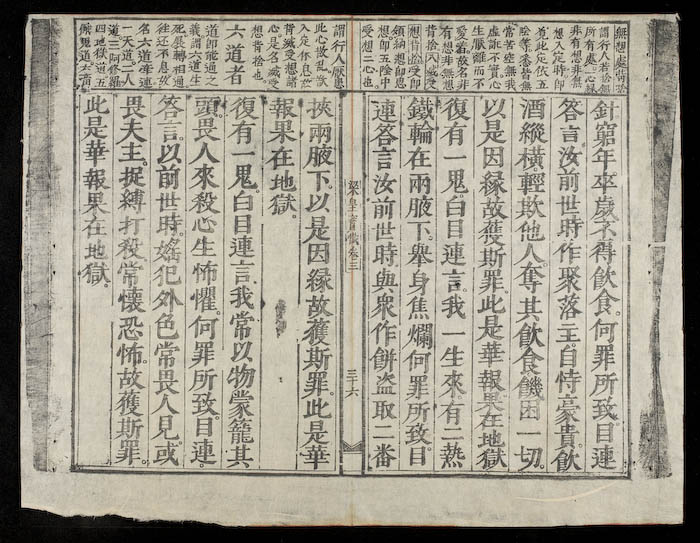 謂行人捨無
非有想非無
想入定時即
常苦空無我
虛誑不實心
生厭離而不
愛着故名非
有想非無想
背捨八滅受
想背捨受即
領納想即思
想即五陰中
受想二心也
針窮年卒歲不得飲食。何罪所致目連
答言汝前世時作聚落主。自恃豪貴。飲
酒縱橫輕欺他人。奪其飲食。饑困一切。
以是因緣故獲斯罪。此是華報果在地獄
復有一鬼白目連言。我一生來。有二熱
鐵輪在兩腋下。舉身焦爛何罪所致目
連答言汝前世時與衆作餅盜取二番
梁皇寶懺卷三
三十六
謂行人厭患
此心散亂欲
入定休息故
背滅受想諸
心是名滅受
想背捨也
六道者
道即能通之
義謂六道生
死展轉相通
往還不息故
一天道二人
道三阿修羅
四地獄道五
挾兩腋下。以是因緣故獲斯罪。此是華
報果在地獄。
復有一鬼。白目連言。我常以物蒙籠其
頭。畏人來殺心生怖懼。何罪所致目連。
答言以前世時。婬犯外色常畏人見。或
畏夫主。捉縛打殺。常懷恐怖。故獲斯罪。
此是華報果在地獄。